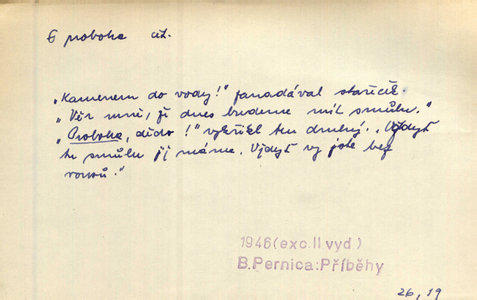 proboha cit.
„Kamenem do vody!" zanadával stařeček.
„Věř mně, že dnes budeme mít smůlu."
„Proboha, dědo!" vykřikl ten druhý. „Vždyť
tu smůlu již máme. Vždyť vy jste bez
vousů."
1946(exc.II vyd)
B.Pernica:Příběhy
26, 19